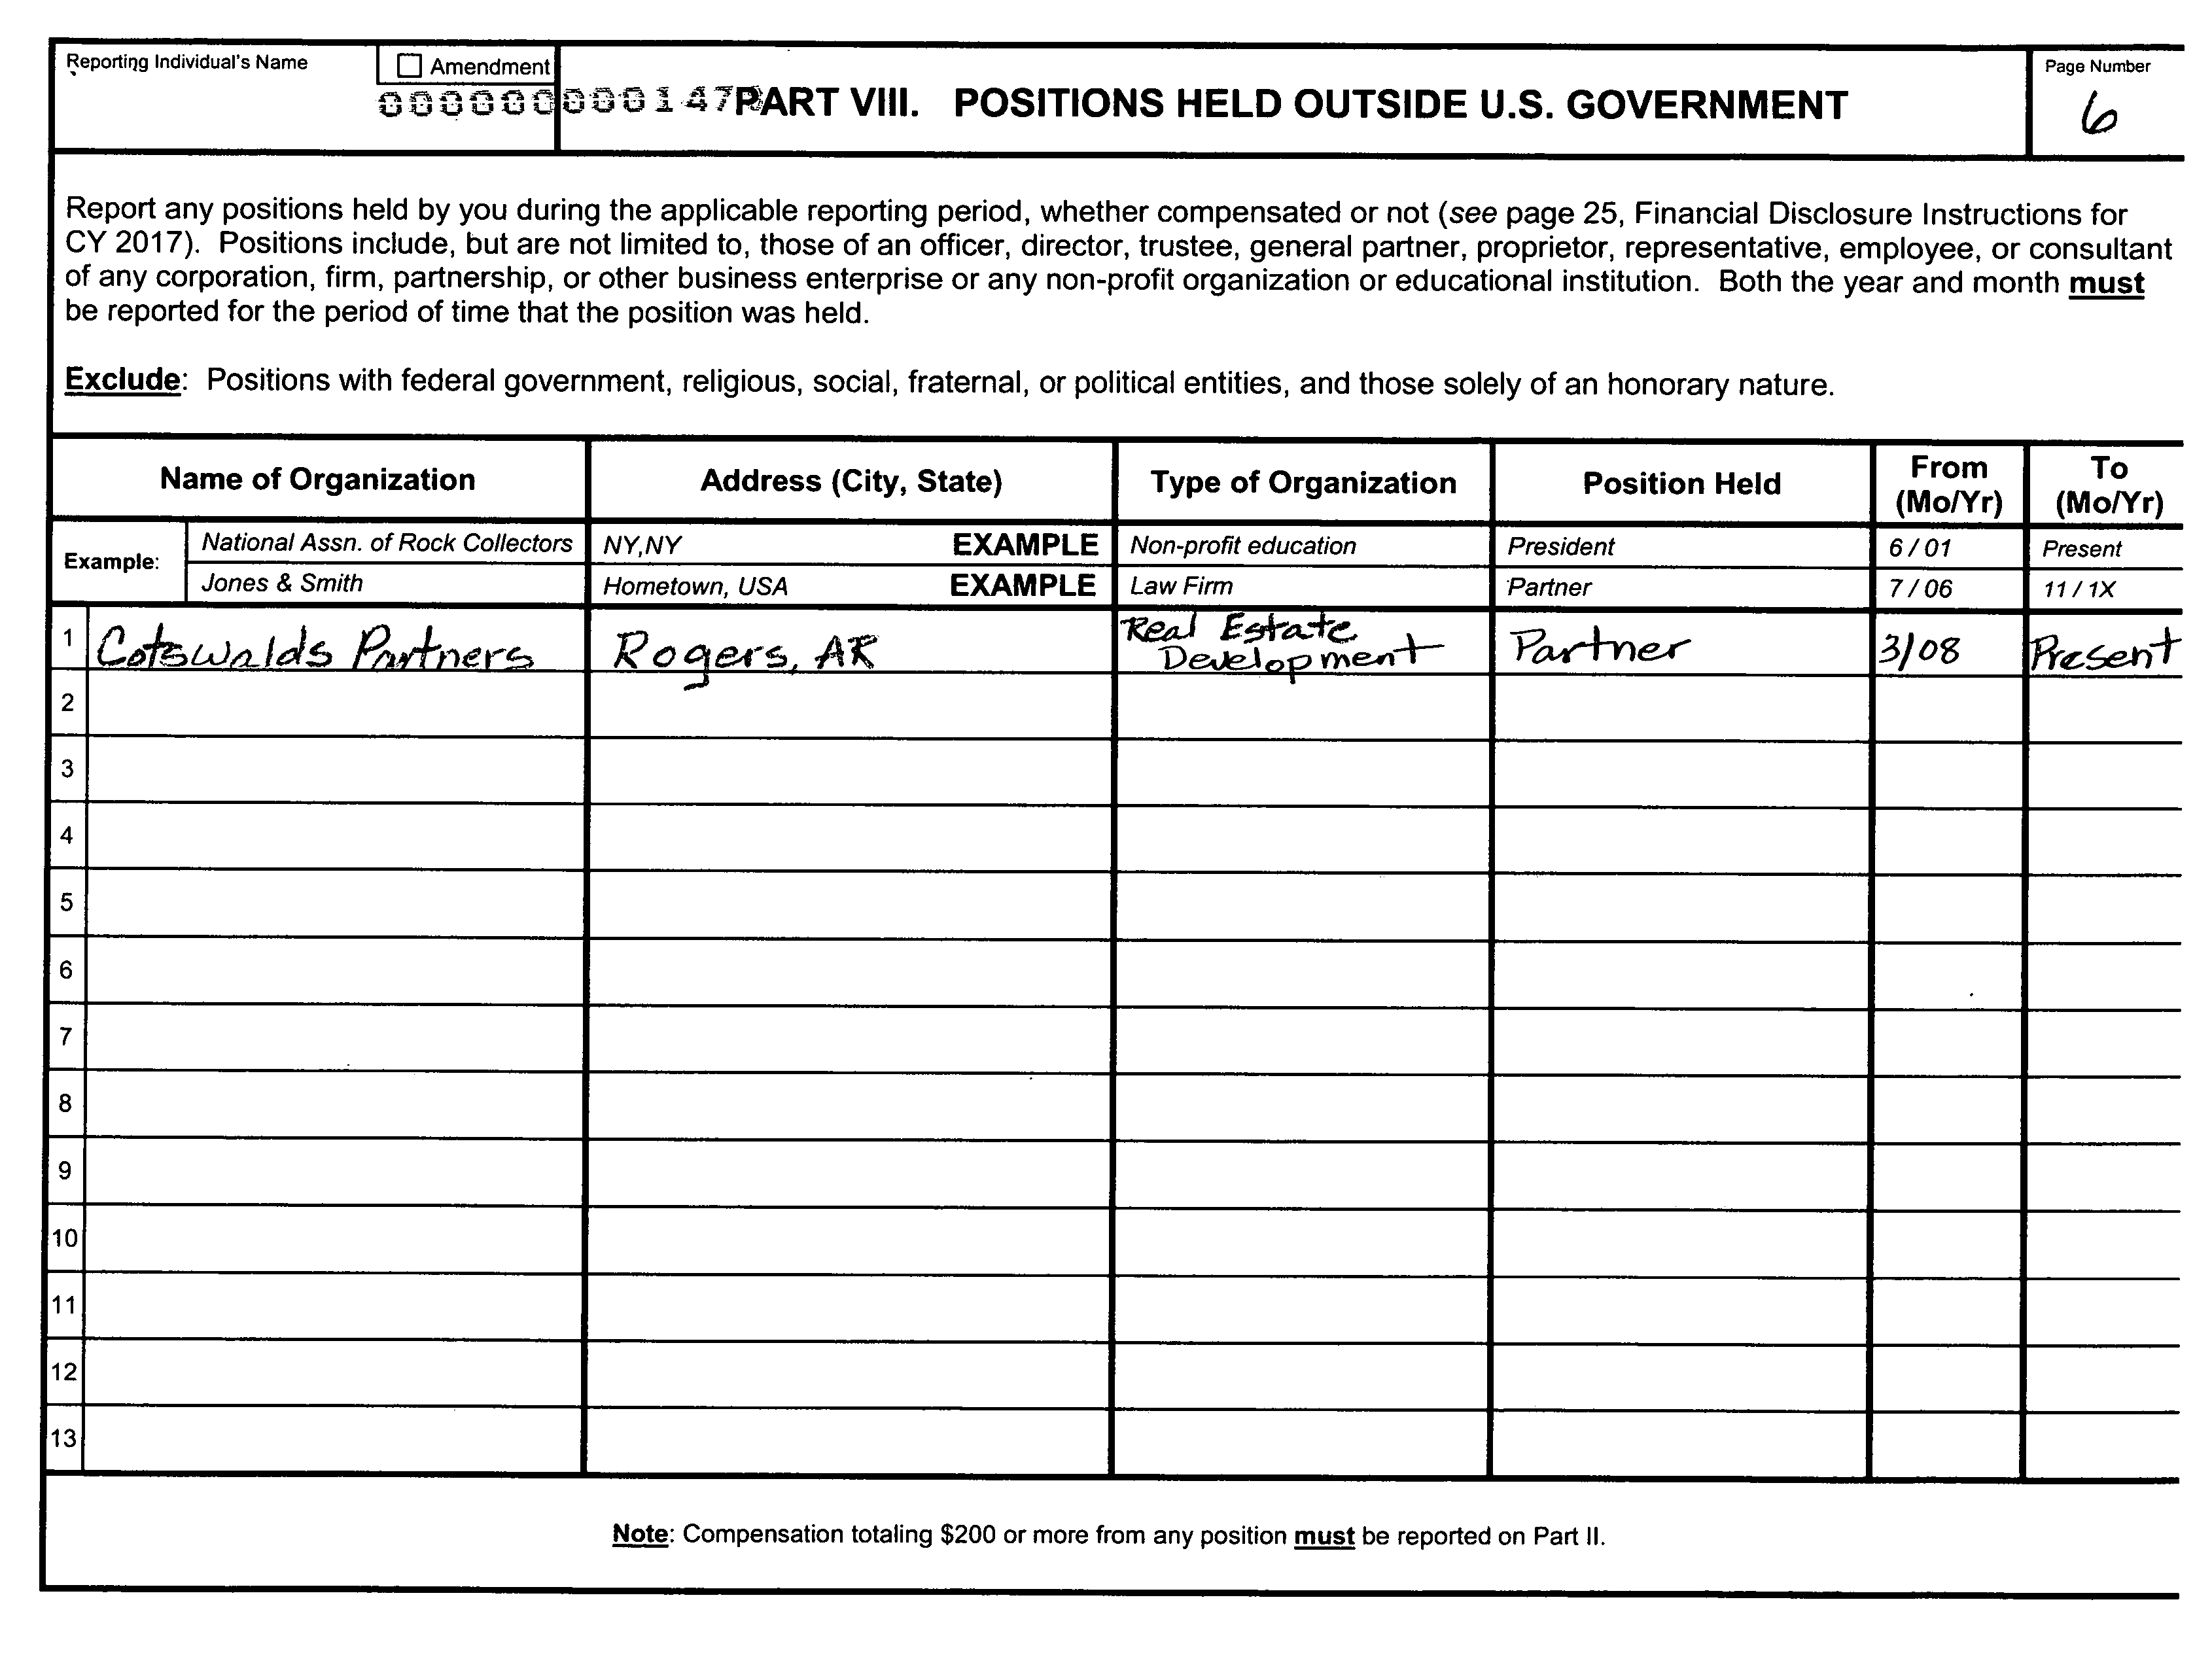 Reporting Individual's Name
Amendment
PART VIII. POSITIONS HELD OUTSIDE U.S. GOVERNMENT
Page Number
6
Report any positions held by you during the applicable reporting period, whether compensated or not (see page 25, Financial Disclosure Instructions for
CY 2017). Positions include, but are not limited to, those of an officer, director, trustee, general partner, proprietor, representative, employee, or consultant
of any corporation, firm, partnership, or other business enterprise or any non-profit organization or educational institution. Both the year and month must
be reported for the period of time that the position was held.
Exclude: Positions with federal government, religious, social, fraternal, or political entities, and those solely of an honorary nature.
Name of Organization Address (City, State) Type of Organization Position Held From (Mo/Yr) To (Mo/Yr)
Example: National Assn. of Rock Collectors NY,NY EXAMPLE Non-profit education President 6 / 01 Present
Jones & Smith Hometown, USA EXAMPLE Law Firm Partner 7 / 06 11 / 1X
1 Cotswalds Partners Rogers, AR Real Estate Development Partner 3/08 Present
2
3
4
5
6
7
8
9
10
11
12
13
Note: Compensation totaling $200 or more from any position must be reported on Part II.